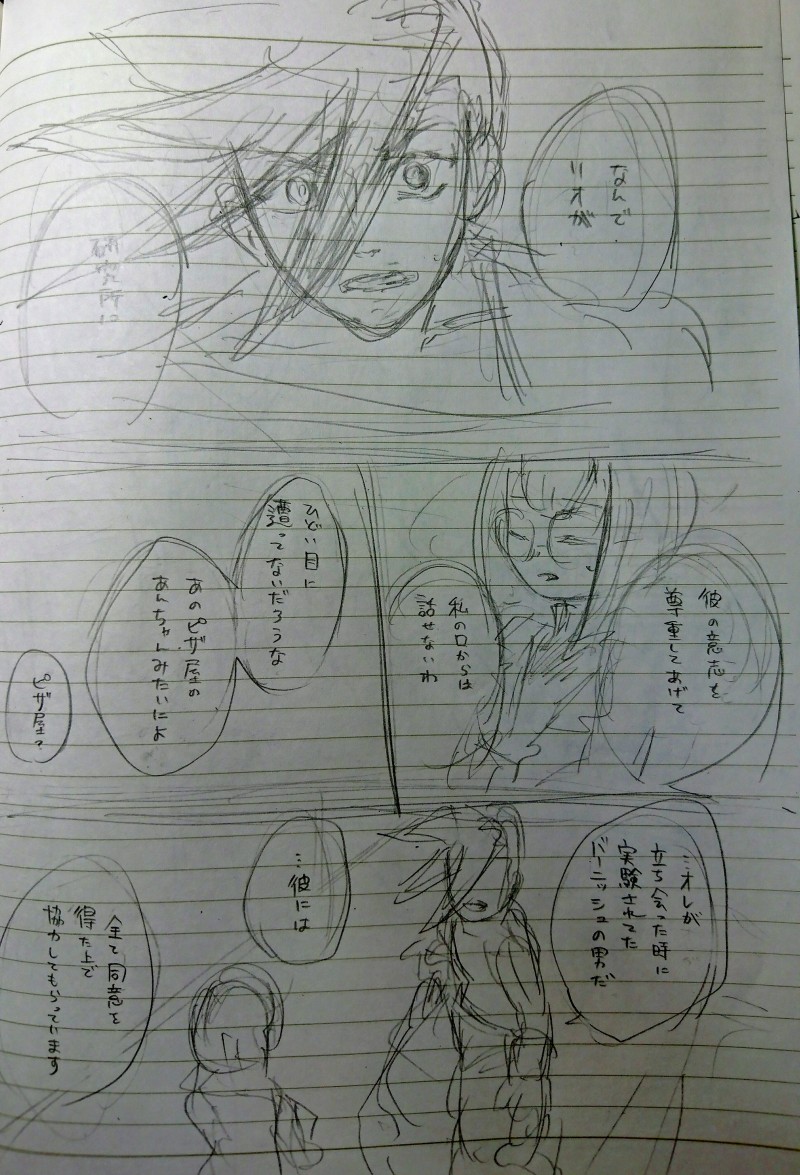 なんで
リオが
研究所に
彼の意志を
尊重してあげて
私の口からは
話せないわ
ひどい目に
遭ってないだろうな
あのピザ屋の
あんちゃんみたいによ
ピザ屋?
…オレが
立ち会った時に
実験されてた
バーニッシュの男だ
…彼には
全て同意を
得た上で
協力してもらっています